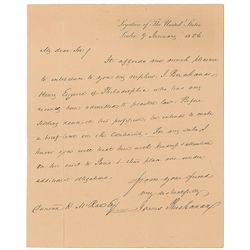 Legation of The United States
London 9 January 1856.
My dear Sir/
It affords me much pleasure
to introduce to you my nephew, J. Buchanan
Henry Esquire of Philadelphia who has very
recently been admitted to practice law. Before
settling down to this profession, he intends to make
a brief tour on the Continent.
know you will treat him with kind attention
on his visit to Paris & thus place me under
additional obligations.
from your friend
very respectfully
James Buchanan